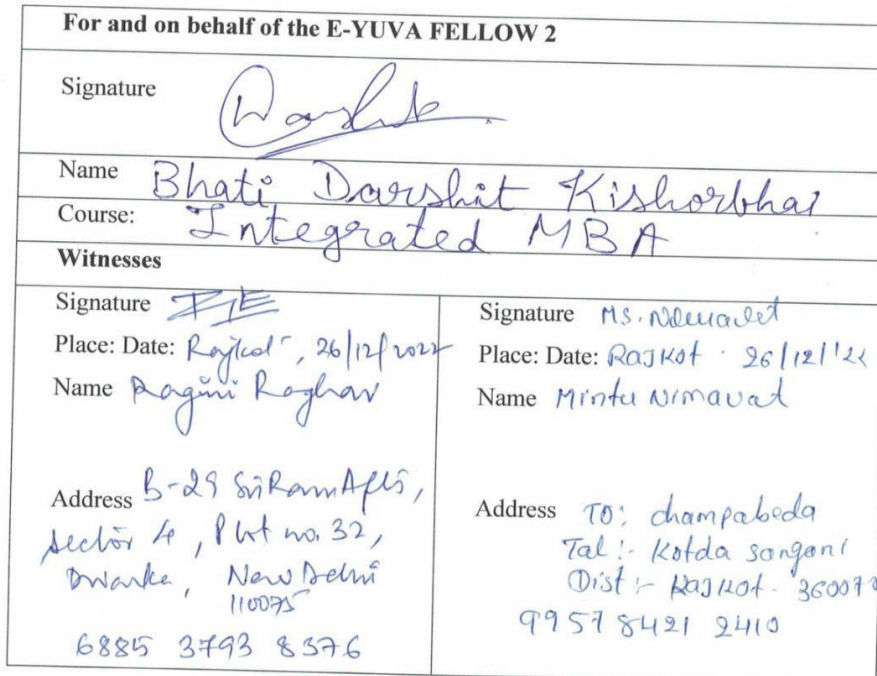 For and on behalf of the E-YUVA FELLOW 2
Signature
Name Bhati Darshit Kishorbhai
Course: Integrated MBA
Witnesses
Signature
Place: Date: Rajkot, 26/12/2022
Name Ragini Raghav
Address B-29 Sri Ram Apts,
Sector 4, Plot no. 32,
Dwarka, New Delhi
110075
6885 3793 8376
Signature Ms.
Place: Date: Rajkot 26/12/'22
Name Mintu Nimavat
Address TO: champabeda
Tal:- Kotda sangani
Dist:- Rajkot-
9957 8421 2410